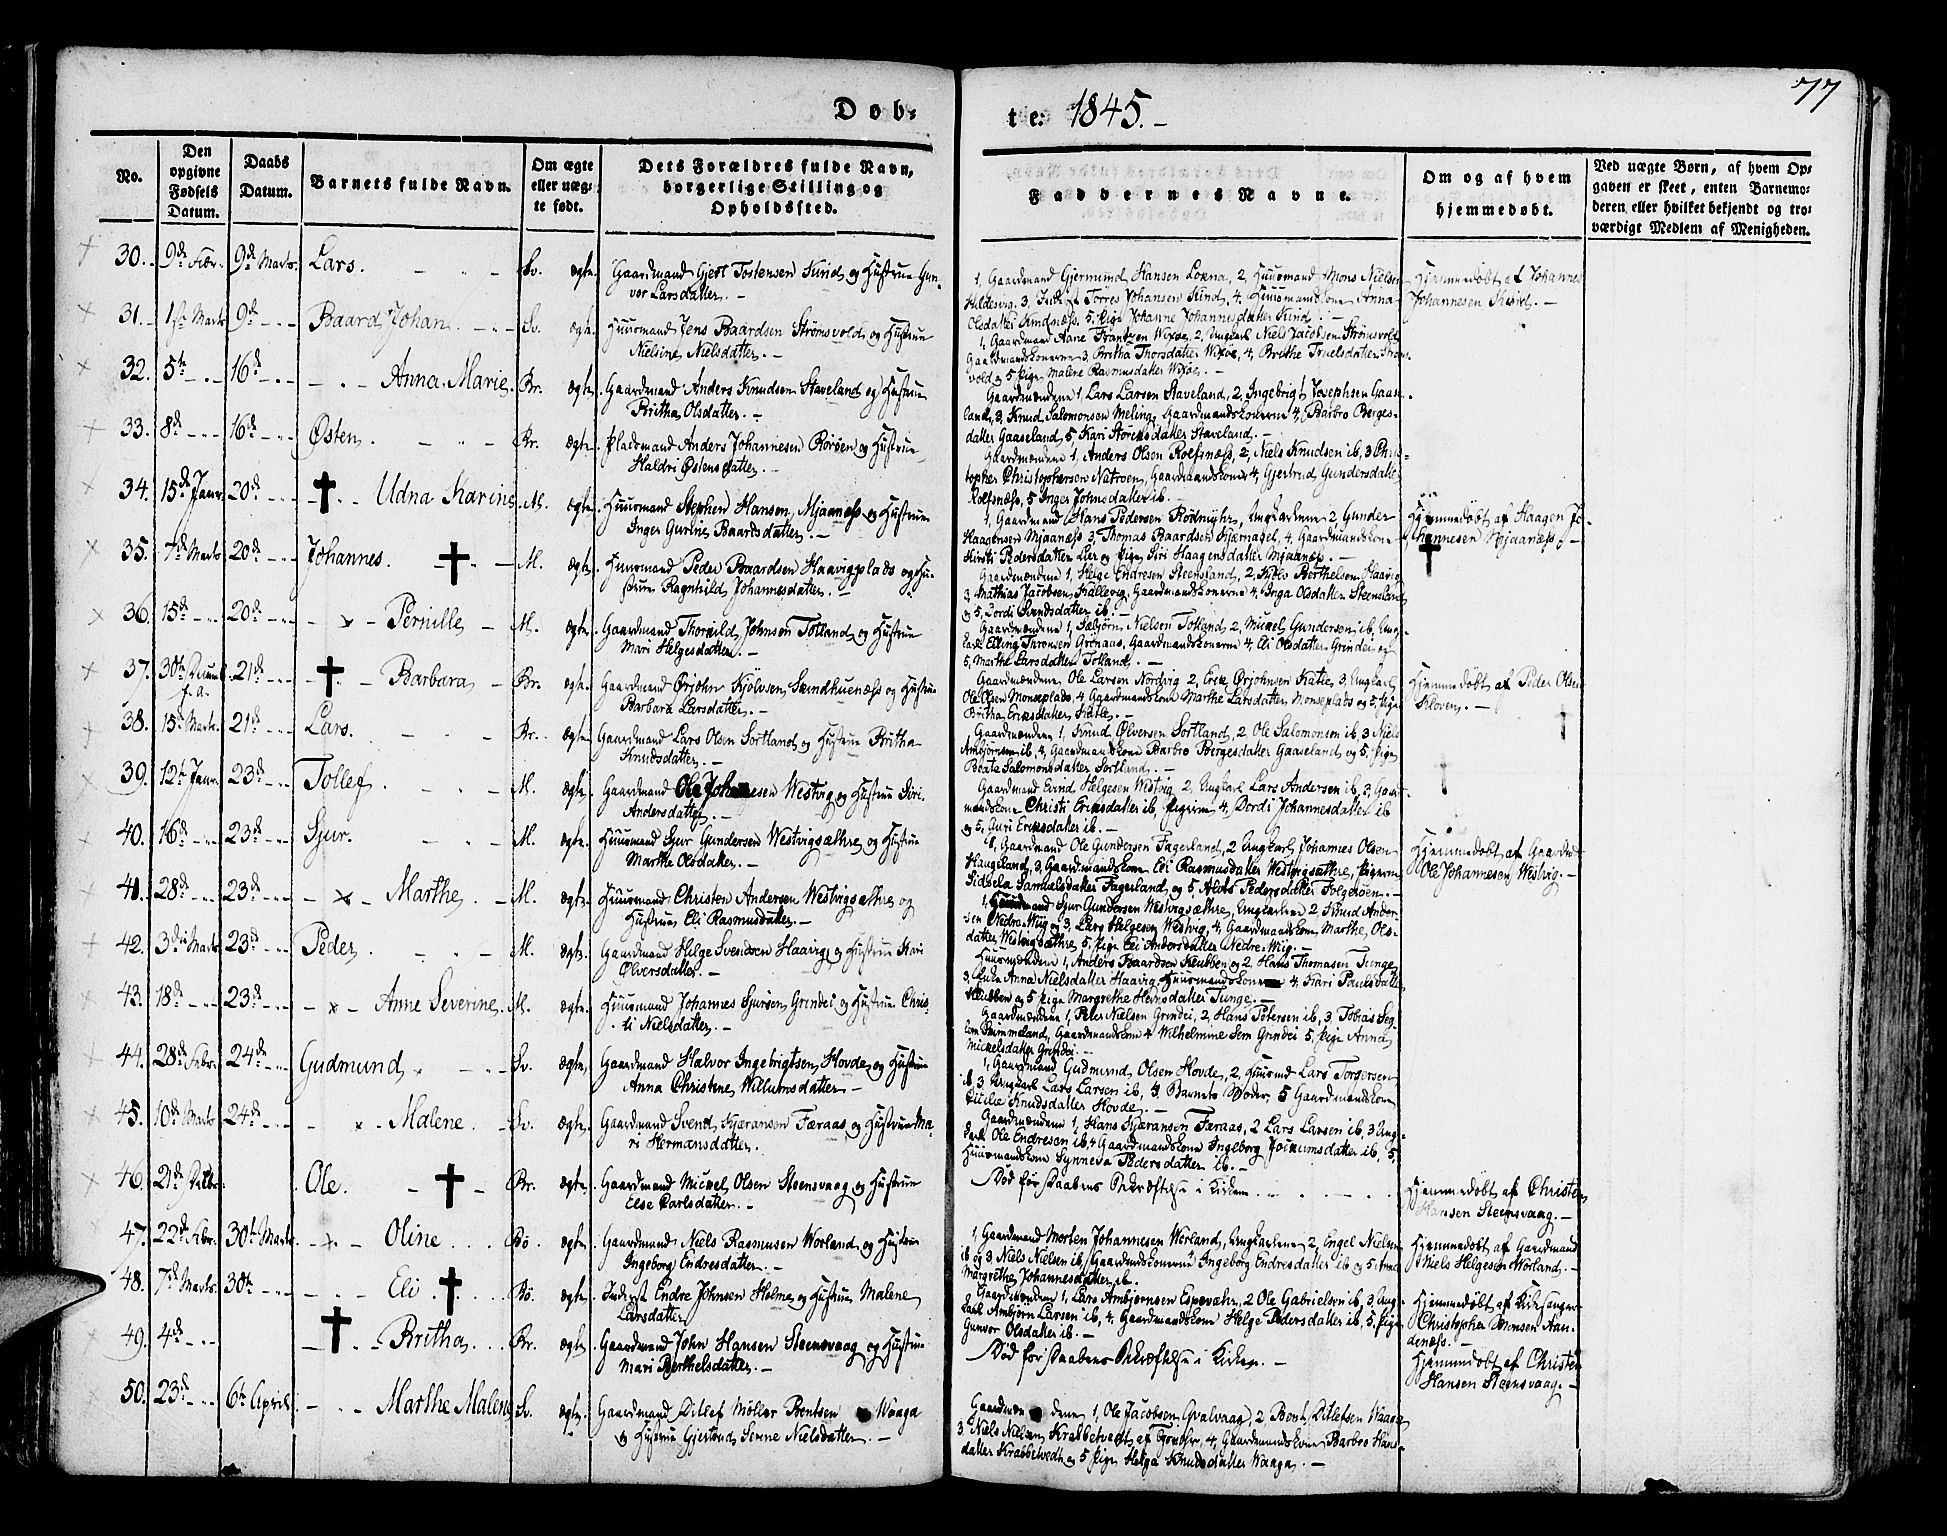 77
Døb-
te: 1845.-
No.
Den opgivne Fødsels Datum.
Daabs Datum.
Barnets fulde Navn.
Om ægte eller uæg-te født.
Dets Forældres fulde Navn, borgerlige Stilling og Opholdssted.
Faddernes Navne.
Om og af hvem hjemmedøbt.
Ved uægte Børn, af hvem Op-gaven er skeet, enten Barnemo-deren eller hvilket bekjendt og tro-værdigt Medlem af Menigheden.
30. 9de Febr. 9de Marts. Lars. Sv. Ægte. Gaardmand Tostensen og Hustrue Gun-
vor Larsdatter. -
1, Gaardmand Gjermund Hansen 2, Huusmand Mons Nielsen
3, Torres Johansen 4, Huusmandskone Anna
Olsdatter 5, Pige Johanne Johannesdatter
Hjemmedøbt af Johannes
Johannesen
31. 1ste Marts 9de Baard Johan. Sv. Ægte. Huusmand Jens Baardsen Strømsvold og Hustrue
Nielsine Nielsdatter. -
1, Gaardmand Aane Frantzen 2, Ungkarl Niels Jacobsen Strømsvold
Gaardmandskonerne 3, Britha Thorsdatter 4, Brithe Truelsdatter Strøms-
vold og 5 Pige Malene Rasmusdatter
32. 5te 16de Anna Marie. Br. Ægte. Gaardmand Anders Knudsen Staveland og Hustrue
Britha Olsdatter. -
Gaardmændene 1, Lars Larsen Staveland, 2, Ingebrigt Josephsen Gaase-
land, 3, Knud Salomonsen Meling, Gaardmandskonerne 4, Barbro Berges-
datter Gaaseland, 5, Kari Staveland. -
33. 8de 16de Østen. Br. Ægte. Pladsmand Anders Johannesen Rorøen og Hustrue
Haldri Østensdatter. -
Gaardmændene 1, Anders Olsen Rolfsnæss, 2, Niels Knudsen ib, 3 Chris-
topher Christophersen Gaardmandskonen 4, Gjertrud Gundersdatter
Rolfsnæss, 5 Inger Johnsdatter ib. -
34. 15de Janr. 20de Udna Karine. M. Ægte. Huusmand Stephen Hansen Mjaanæss og Hustrue
Inger Gurine Baardsdatter. -
1, Gaardmand Hans Pedersen Ungkarlene 2, Gunder
Haagensen Mjaanæss 3, Thomas Baardsen 4, Gaardmandskone
Pedersdatter og Pige Siri Haagensdatter Mjaanæss. -
Hjemmedøbt af Haagen Jo-
hannesen Mjaanæss. -
35. 7de Marts 20de Johannes. M. Ægte. Huusmand Peder Baardsen Haavigplads og Hu-
strue Ragnhild Johannesdatter. -
Gaardmændene 1, Helge Endresen Steensland, 2, Berthelsen Haavig
3, Mathias Jacobsen Kallevig, Gaardmandskonerne 4, Inga Olsdatter Steensland
og 5, Svendsdatter ib. -
36. 15de 20de Pernille M. Ægte. Gaardmand Thorkild Johnsen Totland og Hustrue
Mari Helgesdatter. -
Gaardmændene 1, Nielsen Totland, 2, Mickel Gundersen ib, Ung-
karl Elling Thronsen Grønaas, Gaardmandskonerne 4, Eli Olsdatter Grindei og
5, Marthe Larsdatter Totland. -
37. 30te f. a. 21de Barbara Br. Ægte. Gaardmand Ørjohn og Hustrue
Barbara Larsdatter. -
Gaardmændene, Ole Larsen Nordvig 2, Erik Ørjohnsen 3, Ungkarl
Ole Olsen Monseplads, 4, Gaardmandskone Marthe Larsdatter, Monseplads og 5, Pige
Britha Eriksdatter
Hjemmedøbt af Peder Olsen
Kloven. -
38. 15de Marts. 21de Lars. Br. Ægte. Gaardmand Lars Olsen Sortland og Hustrue Britha
Knudsdatter. -
Gaardmændene 1, Knud Olversen Sortland, 2, Ole Salomonsen ib, 3 Niels
Ambjørnsen ib, 4, Gaardmandskone Barbro Bergesdatter Gaaseland og 5, Pige
Beate Salomonsdatter Sortland. -
39. 12te Janr. 23de Tollef. M. Ægte. Gaardmand Ole Johannesen Westvig og Hustrue Siri
Andersdatter. -
Gaardmand Eivind Helgesen Westvig 2, Ungkarl Lars Andersen ib, 3, Gaard-
mandskone Christi Eriksdatter ib, Pigerne 4, Dordi Johannesdatter ib
og 5, Guri Eriksdatter ib. -
40. 16de 23de Sjur. M. Ægte. Huusmand Sjur Gundersen Westvigsæthre og Hustrue
Marthe Olsdatter. -
1, Gaardmand Ole Gundersen Fagerland, 2 Ungkarl Johannes Olsen
Haugeland, 3, Gaardmandskone Eli Rasmusdatter Westvigsæthre, Pigerne
Sidsela Samuelsdatter Fagerland og 5, Alvis Pedersdatter Folgerøen. -
Hjemmedøbt af Gaardm.
Ole Johannesen Westvig. -
41. 28de 23de Marthe. M. Ægte. Huusmand Christen Andersen Westvigsæthre og
Hustrue Eli Rasmusdatter. -
1, Huusmand Sjur Gundersen Westvigsæthre, Ungkarlene 2, Knud Ander-
sen Nedre Wiig og 3, Lars Helgesen Westvig, 4, Gaardmandskone Marthe Ols-
datter Westvigsæthre, 5, Pige Eli Andersdatter Nedre Wiig. -
42. 3die Marts 23de Peder. M. Ægte. Gaardmand Helge Svendsen Haavig og Hustrue Kari
Olversdatter. -
Huusmændene 1, Anders Baardsen Klubben og 2, Hans Thomasen Tunge,
3, Enke Anna Nielsdatter Haavig, Huusmandskonerne 4, Kari Paulsdatter
Klubben og 5 Pige Margrethe Tunge. -
43. 18de 23de Anne Severine. M. Ægte. Huusmand Johannes Sjursen Grindei og Hustrue Chris-
ti Nielsdatter. -
Gaardmændene 1, Peter Nielsen Grindei, 2, Hans Petersen ib, 3 Tobias
Gaardmandskone 4 Wilhelmine Grindei 5, Pige Anna
Mickelsdatter Grindei. -
44. 28de Febr. 24de Gudmund Sv. Ægte. Gaardmand Halvor Ingebrigtsen Hovde og Hustrue
Anna Christine Willumsdatter. -
1, Gaardmand Gudmund Olsen Hovde, 2, Huusmd Lars Torgersen
ib, 3, Ungkarl Lars Larsen ib, 4, Barnets Moder, 5 Gaardmandskone
Knudsdatter Hovde. -
45. 10de Marts 24de Malene. Sv. Ægte. Gaardmand Svend Kjeransen Færaas og Hustrue Ma-
ri Hermansdatter.
Gaardmændene 1, Hans Kjeransen Færaas, 2 Lars Larsen ib, 3 Ung-
karl Ole Endresen ib, 4 Gaardmandskone Ingeborg Jockumsdatter ib, 5,
Huusmandskone Synneva Pedersdatter ib. -
46. 21de Ole. Br. Ægte. Gaardmand Mickel Olsen Steensvaag og Hustrue
Else Carlsdatter. -
Død før Daabens Bekræftelse i Kirken.
Hjemmedøbt af Christen
Hansen Steensvaag. -
47. 22de Febr. 30te Marts Oline Bø. Ægte. Gaardmand Niels Rasmussen Worland og Hustrue
Ingeborg Endresdatter. -
1, Gaardmand Morten Johannesen Werland, Ungkarlene 2, Engel Nielsen
ib og 3, Niels Nielsen ib, Gaardmandskonerne 4 Ingeborg Endresdatter ib og 5 Anne
Margrethe Johannesdatter ib.
Hjemmedøbt af Gaardmand
Niels Helgesen Worland. -
48. 7de Marts 30te Eli Bø. Ægte. Inderst Endre Johnsen Holme og Hustrue Malene
Larsdatter
Gaardmændene 1, Lars Ambjørnsen Espevæhr, 2 Ole Gabrielsen ib, 3, Ung-
karl Ambjørn Larsen ib, 4, Gaardmandskone Helge Pedersdatter ib, 5, Pige
Gunvor Olsdatter ib. -
Hjemmedøbt af Kirkesanger
Christopher Monsen Aan-
denæss. -
49. 4de Britha Br. Ægte. Gaardmand John Hansen Steensvaag og Hustrue
Mari Berthelsdatter. -
Død før Daabens Bekræftelse i Kirken. -
Hjemmedøbt af Christen
Hansen Steensvaag. -
50. 23de 6te April. Marthe Malene Sv. Ægte. Gaardmand Ditlef Møller Bentsen Waaga
og Hustrue Gjertrud Serine Nielsdatter. -
Gaardmændene 1, Ole Jacobsen Qvalvaag, 2 Bent Ditlefsen Waage
3 Niels Nielsen Krabbetvedt af 4, Gaardmandskone Barbro Hans-
datter Krabbetvedt og 5 Pige Helga Knudsdatter Waaga. -